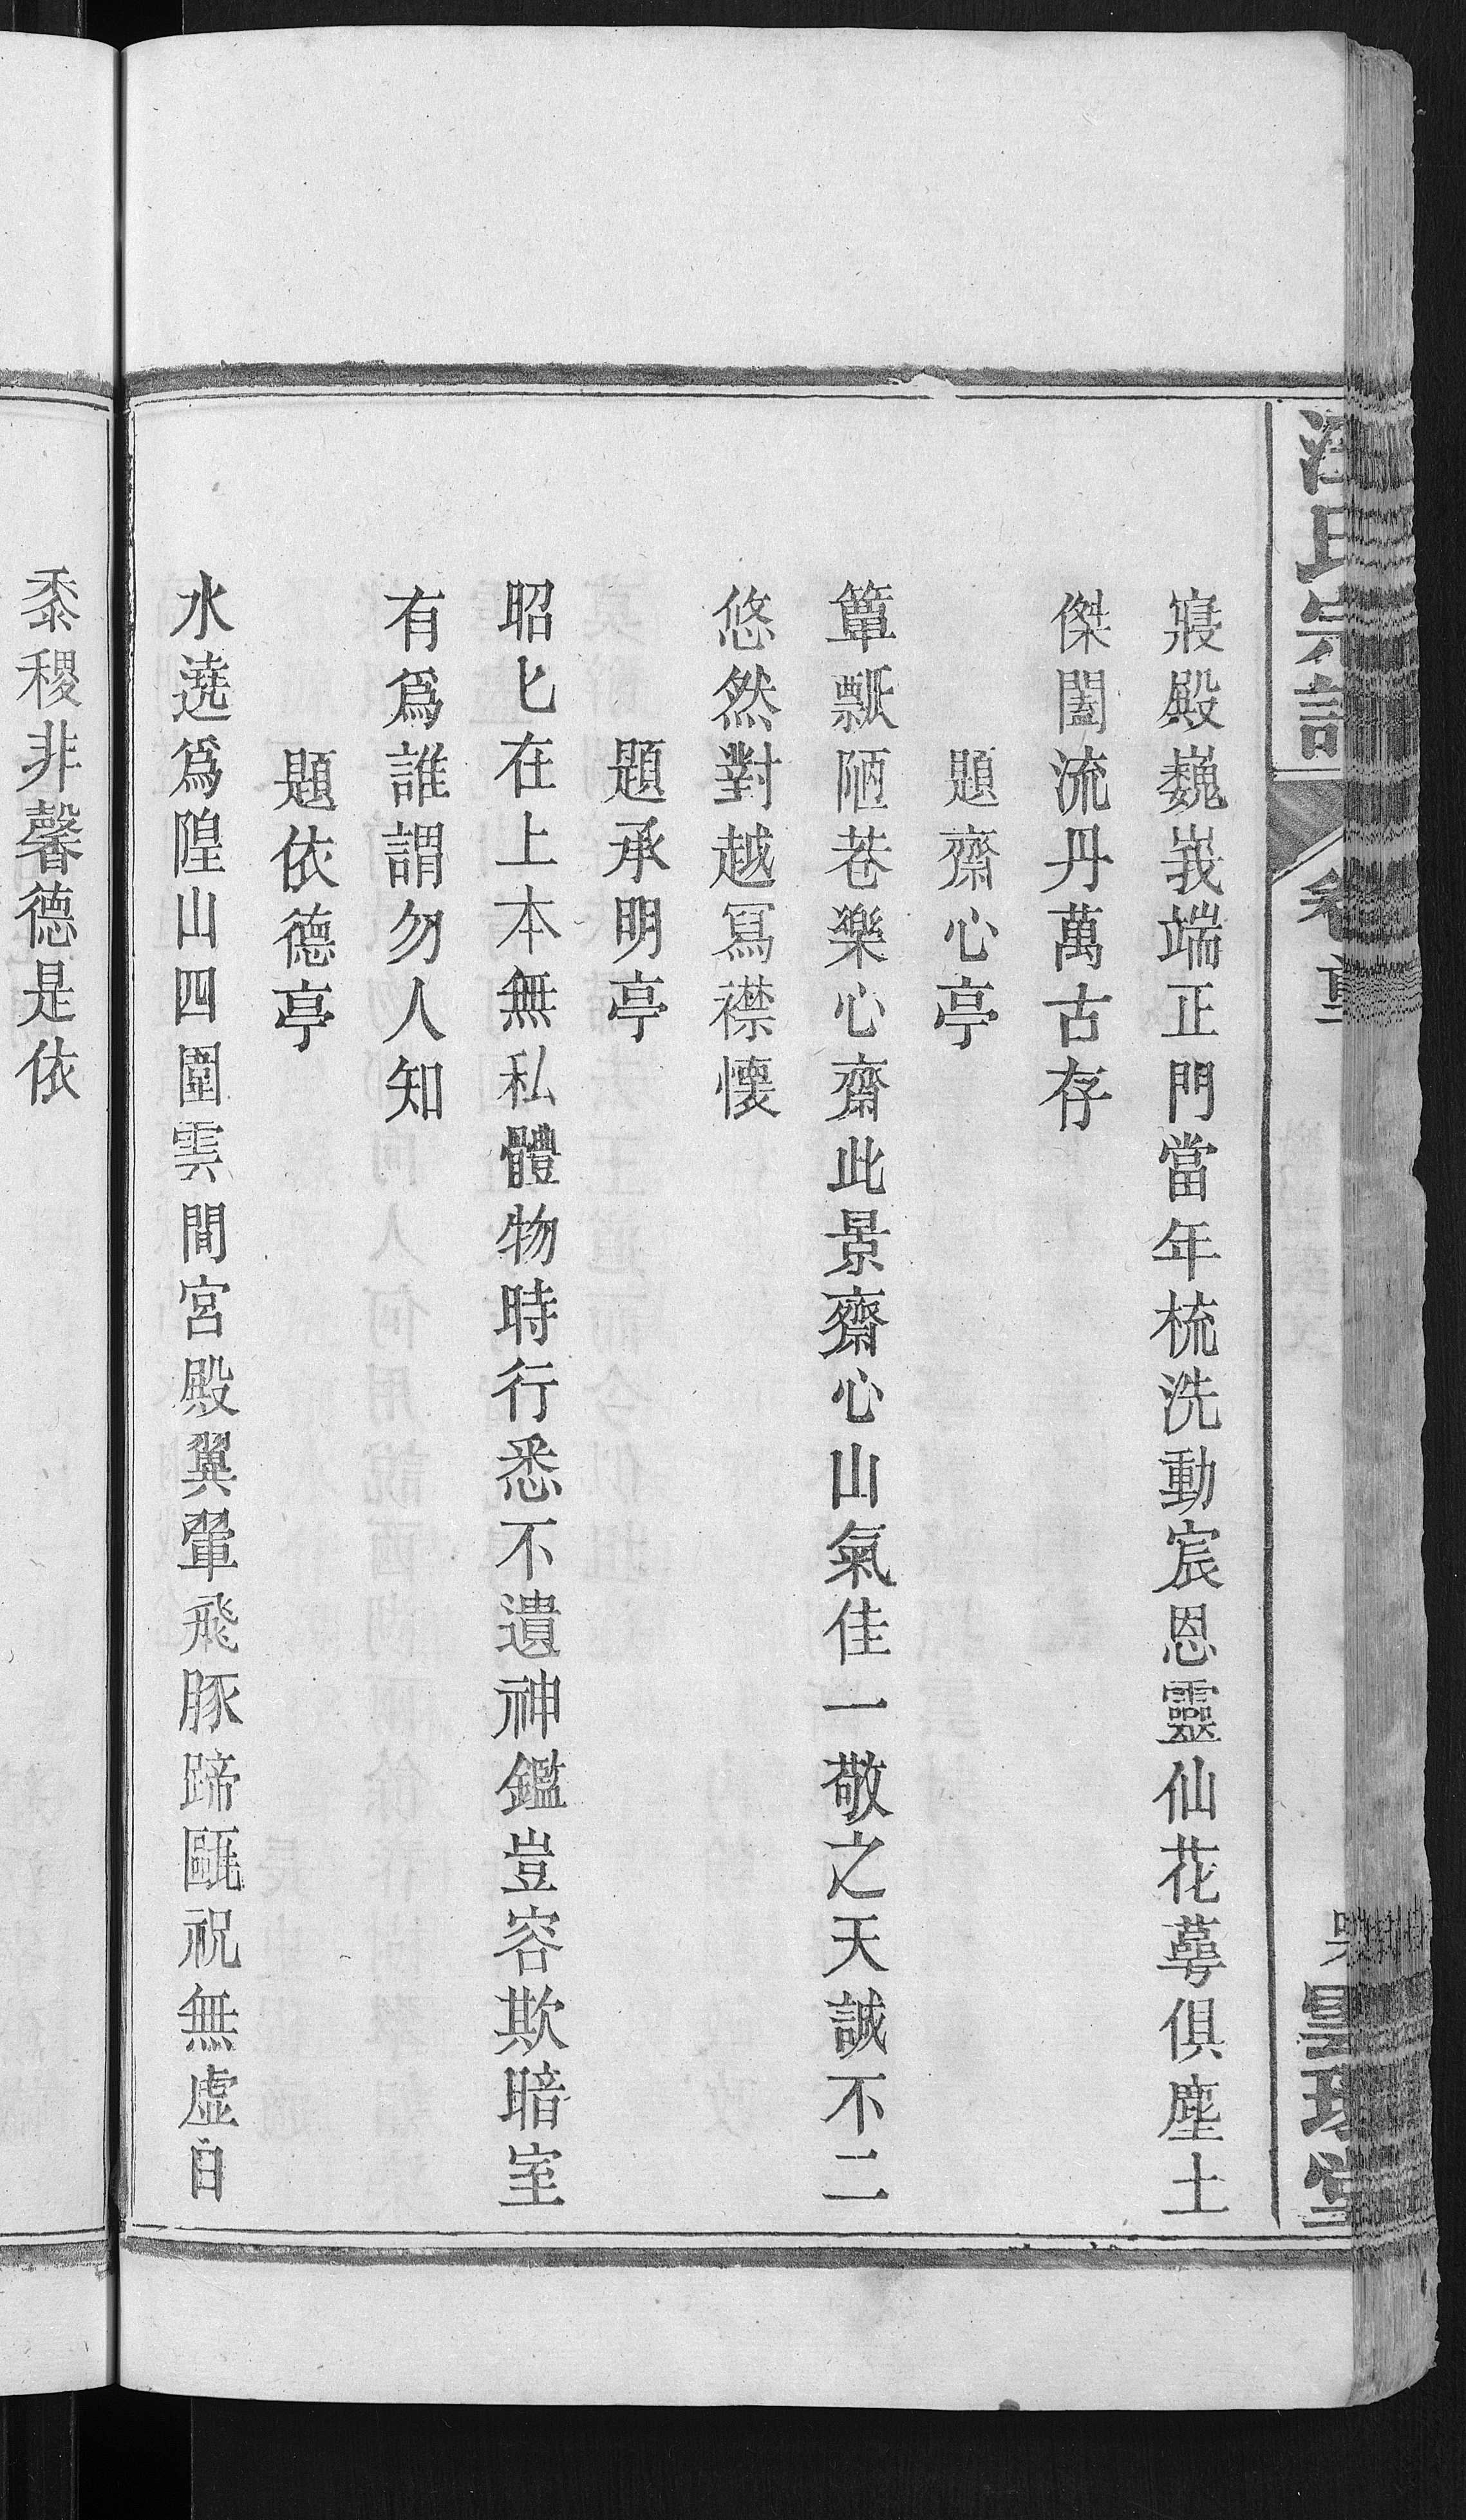 汪氏宗譜
卷
寢殿巍峩端正門當年梳洗動宸恩靈仙花蕚俱塵土
傑閣流丹萬古存
題齋心亭
簞瓢陋巷樂心齋此景齋心山氣佳一敬之天誠不二
悠然對越冩襟懷
題承明亭
昭匕在上本無私體物時行悉不遺神鑑豈容欺暗室
有爲誰謂勿人知
題依德亭
水遶爲隍山四圍雲間宮殿翼翬飛豚蹄甌祝無虛日
黍稷非馨德是依